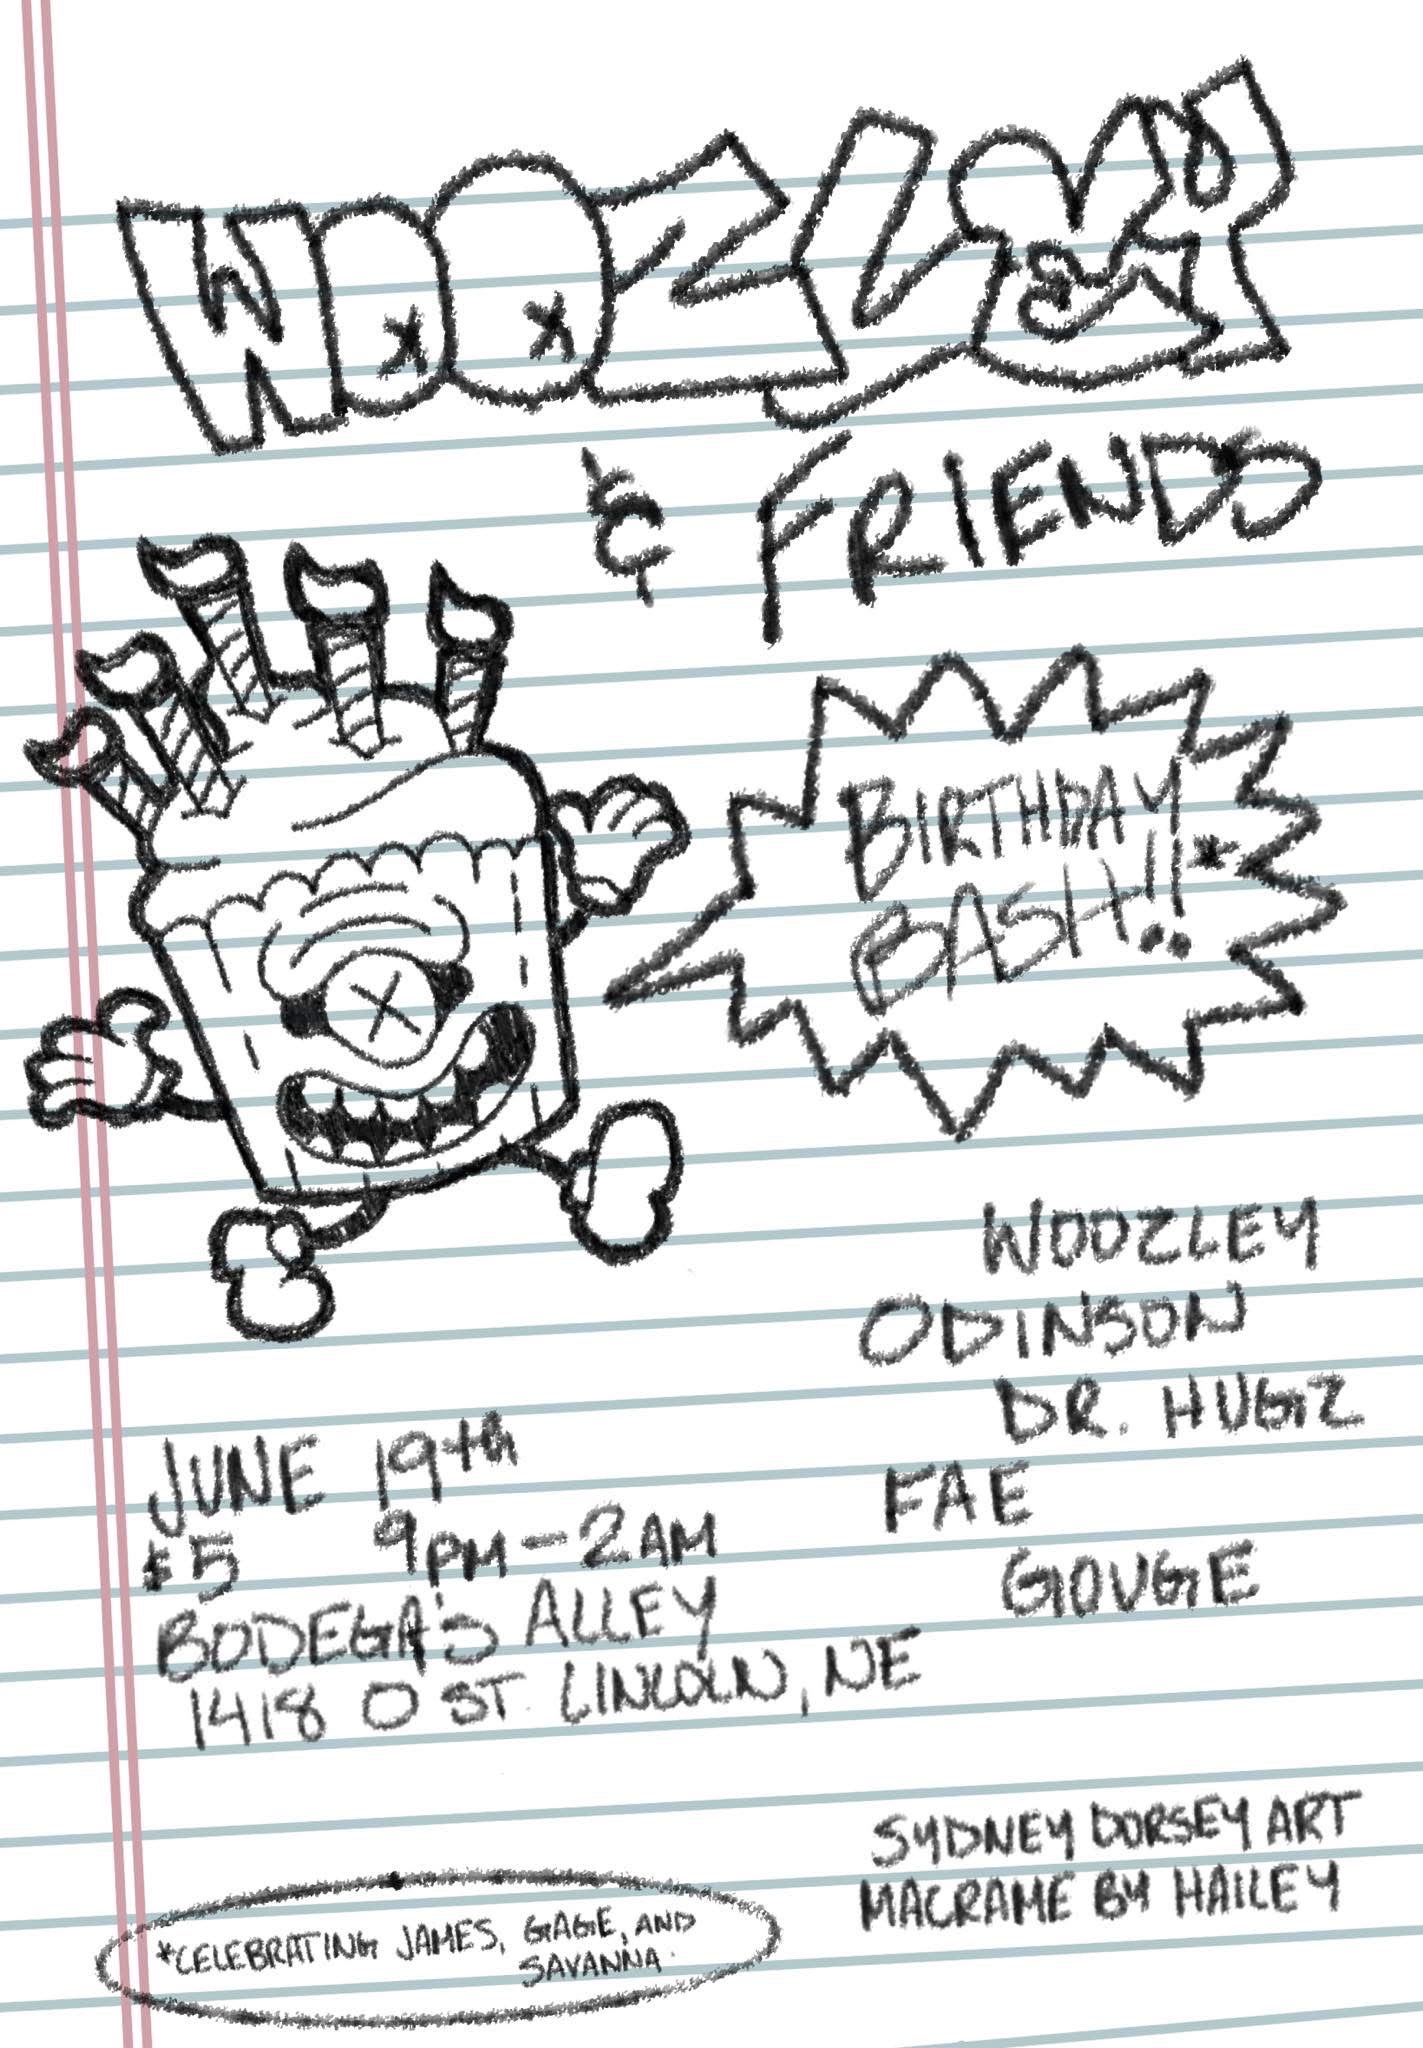 WOOZLEY
& FRIENDS
BIRTHDAY
BASH!!*
WOOZLEY
ODINSON
DR. HUGZ
FAE
GOUGE
JUNE 19th
$5 9PM-2AM
BODEGA'S ALLEY
1418 O ST. LINCOLN, NE
SYDNEY DORSEY ART
MACRAME BY HAILEY
*CELEBRATING JAMES, GAGE, AND
SAVANNA.